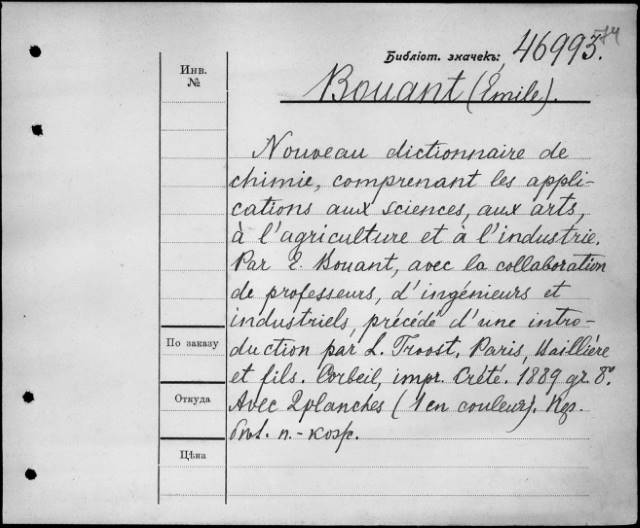 Библіот. значекъ: 46993.
Инв.
№
Bouant (Emile).
Nouveau dictionnaire de
chimie, comprenant les appli-
cations aux sciences, aux arts,
à l'agriculture et à l'industrie.
Par E. Bouant, avec la collaboration
de professeurs, d'ingénieurs et
industriels, précédé d'une intro-
По заказу
duction par L. Troost. Paris, Baillière
et fils. Corbeil, impr. Crété. 1889 gr. 8º.
Откуда
Avec 2 planches (1 en couleur).
п.-кож.
Цѣна